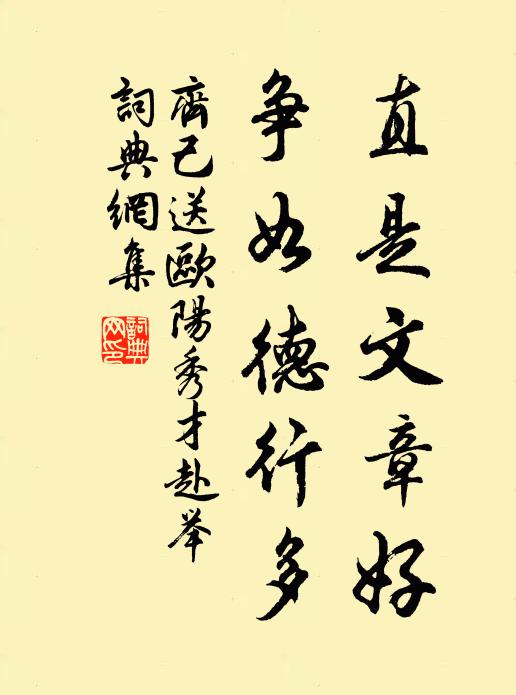 直是文章好
争如德行多
齊己送歐陽秀才赴举
詞典網集
詞典
网印